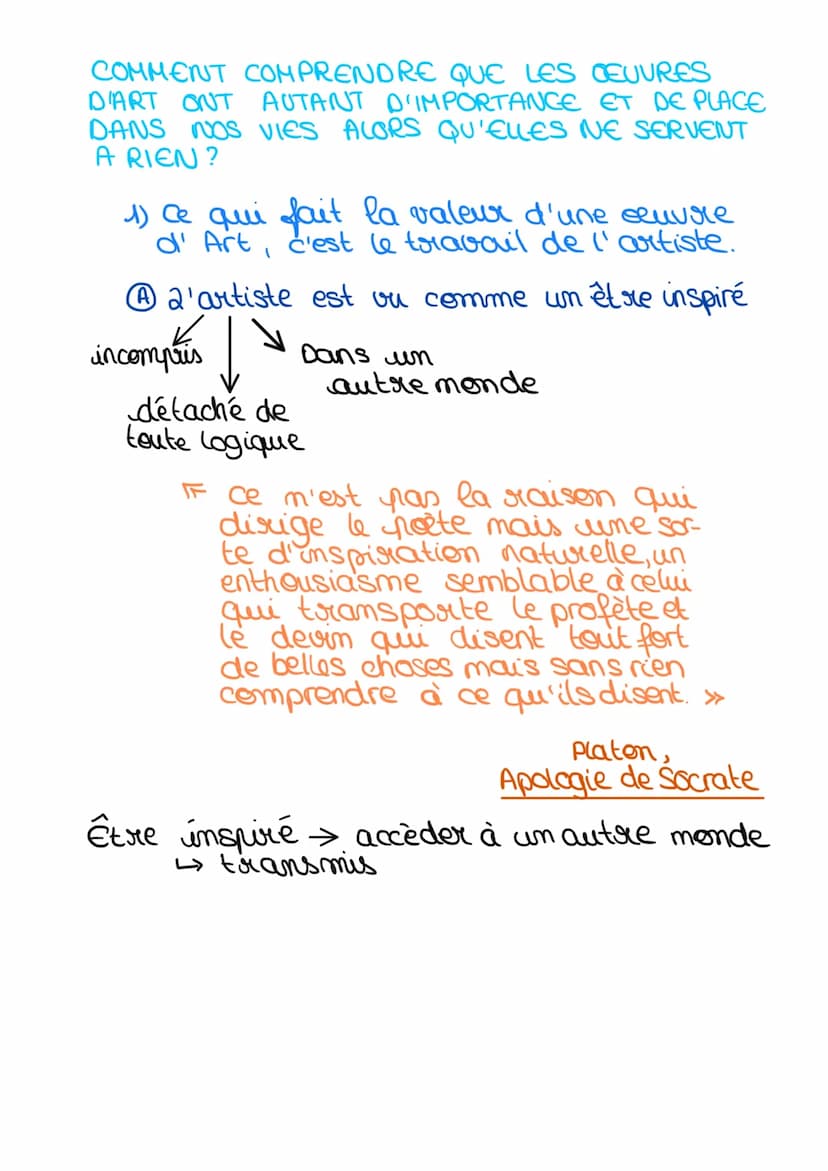 COMMENT COMPRENDRE QUE LES ŒUVRES
D'ART ONT AUTANT D'IMPORTANCE ET DE PLACE
DANS NOS VIES ALORS QU'ELLES NE SERVENT
A RIEN ?
1) Ce qui fait la valeur d'une œuvre
d'Art, c'est le travail de l'artiste.
A L'artiste est vu comme un être inspiré
incompris
Dans un
autre monde
détaché de
toute logique
« Ce n'est pas la raison qui
dirige le poète mais une sor-
te d'inspiration naturelle, un
enthousiasme semblable à celui
qui transporte le profète et
le devin qui disent tout fort
de belles choses mais sans rien
comprendre à ce qu'ils disent. »
Platon,
Apologie de Socrate
Être inspiré → accèder à un autre monde
↳ transmis